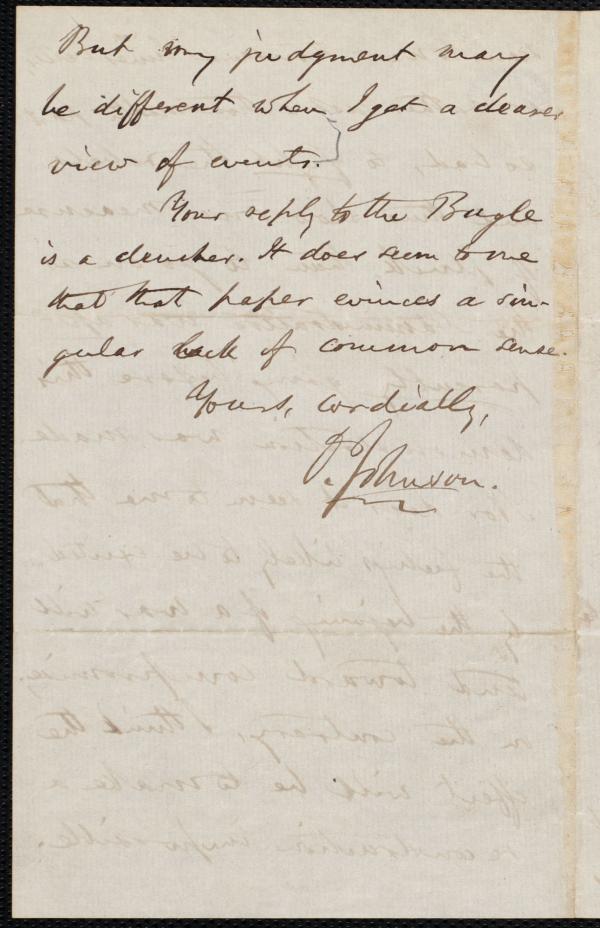 But my judgment may
be different when I get a clearer
view of events.
Your reply to the Bugle
is a clincher. It does seem to me
that that paper evinces a sin-
gular lack of common sense.
Yours, cordially,
Johnson.